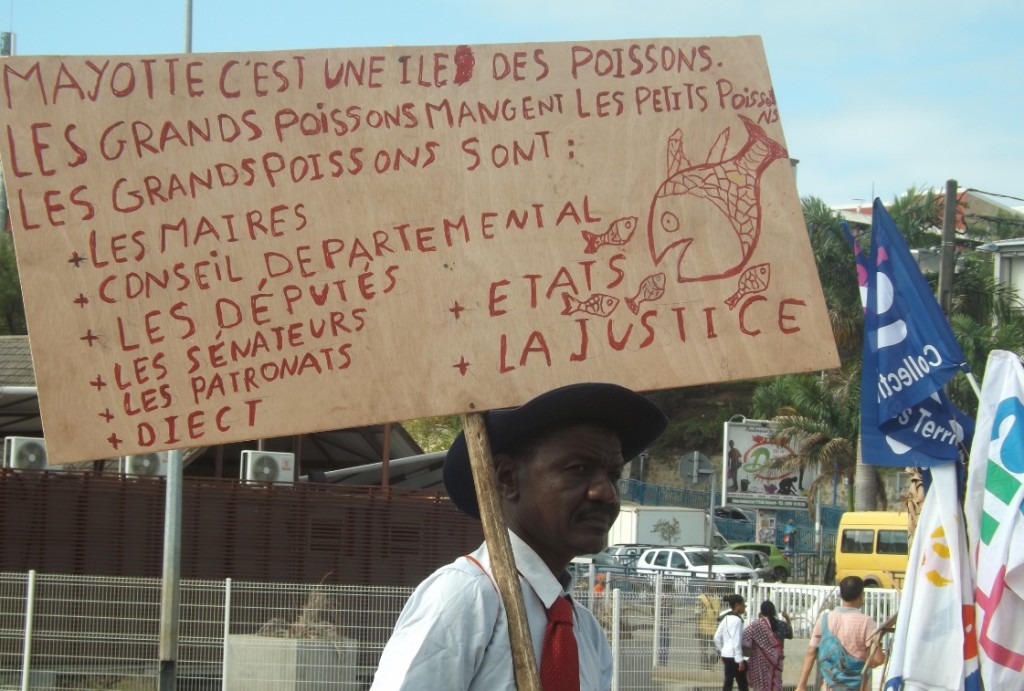 MAYOTTE C'EST UNE ILE DES POISSONS.
LES GRANDS POISSONS MANGENT LES PETITS POISSONS
LES GRANDS POISSONS SONT :
+ LES MAIRES
+ CONSEIL DEPARTEMENTAL
+ LES DÉPUTÉS
+ LES SÉNATEURS
+ LES PATRONATS
+ DIECT
+ ETATS
+ LA JUSTICE
Collecti
s Terri